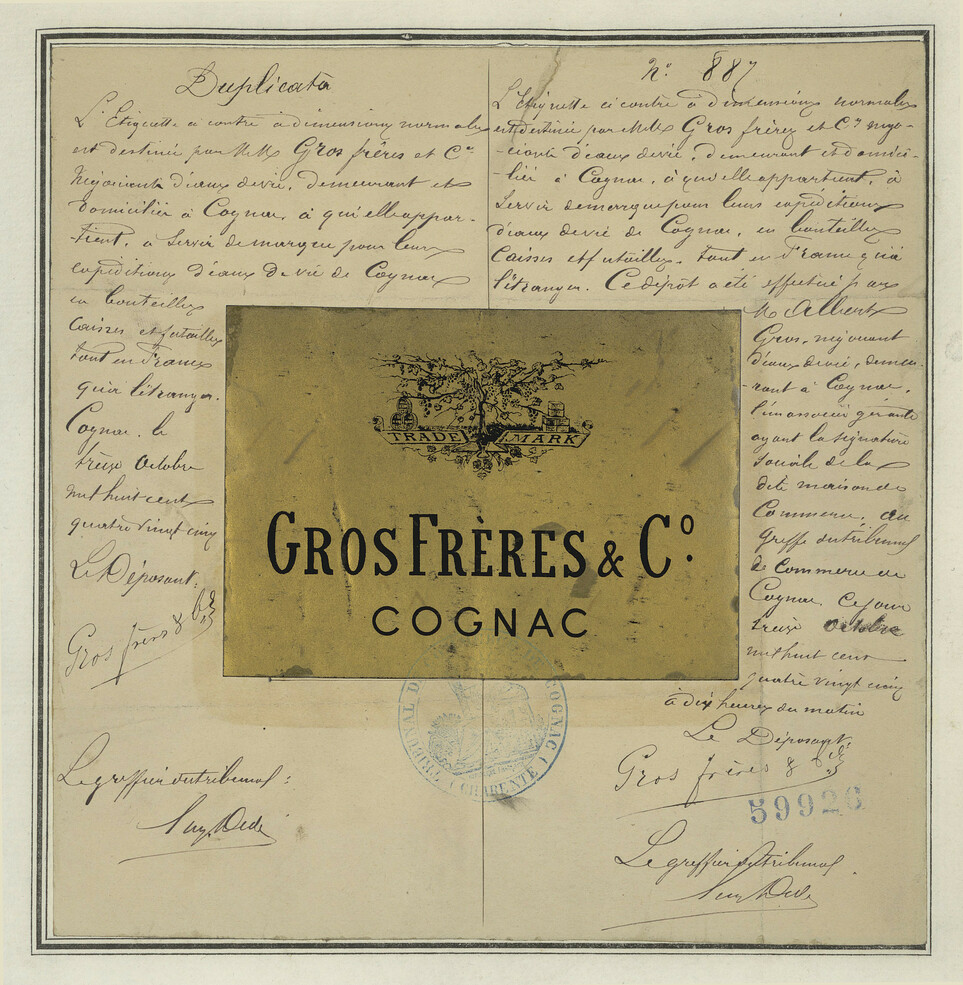 Duplicata
L'Etiquette ci contre à dimensions normales
est destinée par M.M. Gros frères et Cie
Négociants d'eaux de vie, demeurant et
domiciliés à Cognac, à qui elle appar-
tient, à servir de marque pour leurs
expéditions d'eaux de vie de Cognac
en bouteilles
caisses et futailles
tant en France
qu'à l'étranger.
Cognac, le
treize Octobre
mil huit cent
quatre vingt cinq
Le Déposant:
Gros frères &
Le greffier du tribunal:
No 887
L'Etiquette ci contre à dimensions normales
est destinée par M.M. Gros frères et Cie négo-
-ciants d'eaux de vie, demeurant et domici-
-liés à Cognac, à qui elle appartient, à
servir de marque pour leurs expéditions
d'eaux de vie de Cognac, en bouteilles
caisses et futailles, tant en France qu'à
l'étranger. Ce dépôt a été effectué par
M. Albert
Gros, négociant
d'eaux de vie, demeu-
-rant à Cognac,
l'un associé gérant
ayant la signature
sociale de la
dite maison de
Commerce, au
Greffe du tribunal
de Commerce de
Cognac, ce jour
treize Octobre
mil huit cent
quatre vingt cinq
à dix heures du matin
Le Déposant:
Gros frères &
59926
Le greffier du tribunal
TRADE MARK
GROS FRÈRES & Co.
COGNAC
TRIBUNAL DE COGNAC
(CHARENTE)